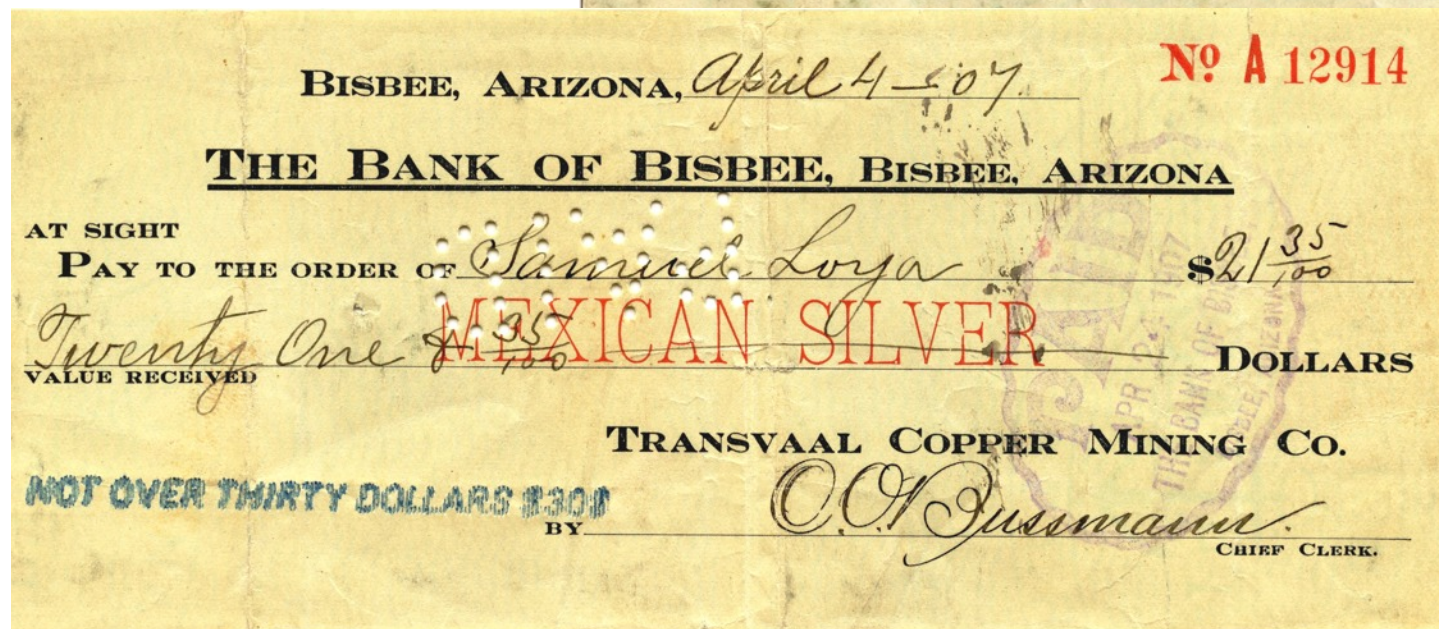 BISBEE, ARIZONA, April 4 - 07
Nº A 12914
THE BANK OF BISBEE, BISBEE, ARIZONA
AT SIGHT
PAY TO THE ORDER OF Samuel Loya $21 35/100
MEXICAN SILVER
Twenty One & 35/100 DOLLARS
VALUE RECEIVED
TRANSVAAL COPPER MINING CO.
NOT OVER THIRTY DOLLARS $30$
BY Bussmann
CHIEF CLERK.
PAID
APR 1907
THE BANK OF
BISBEE, ARIZONA